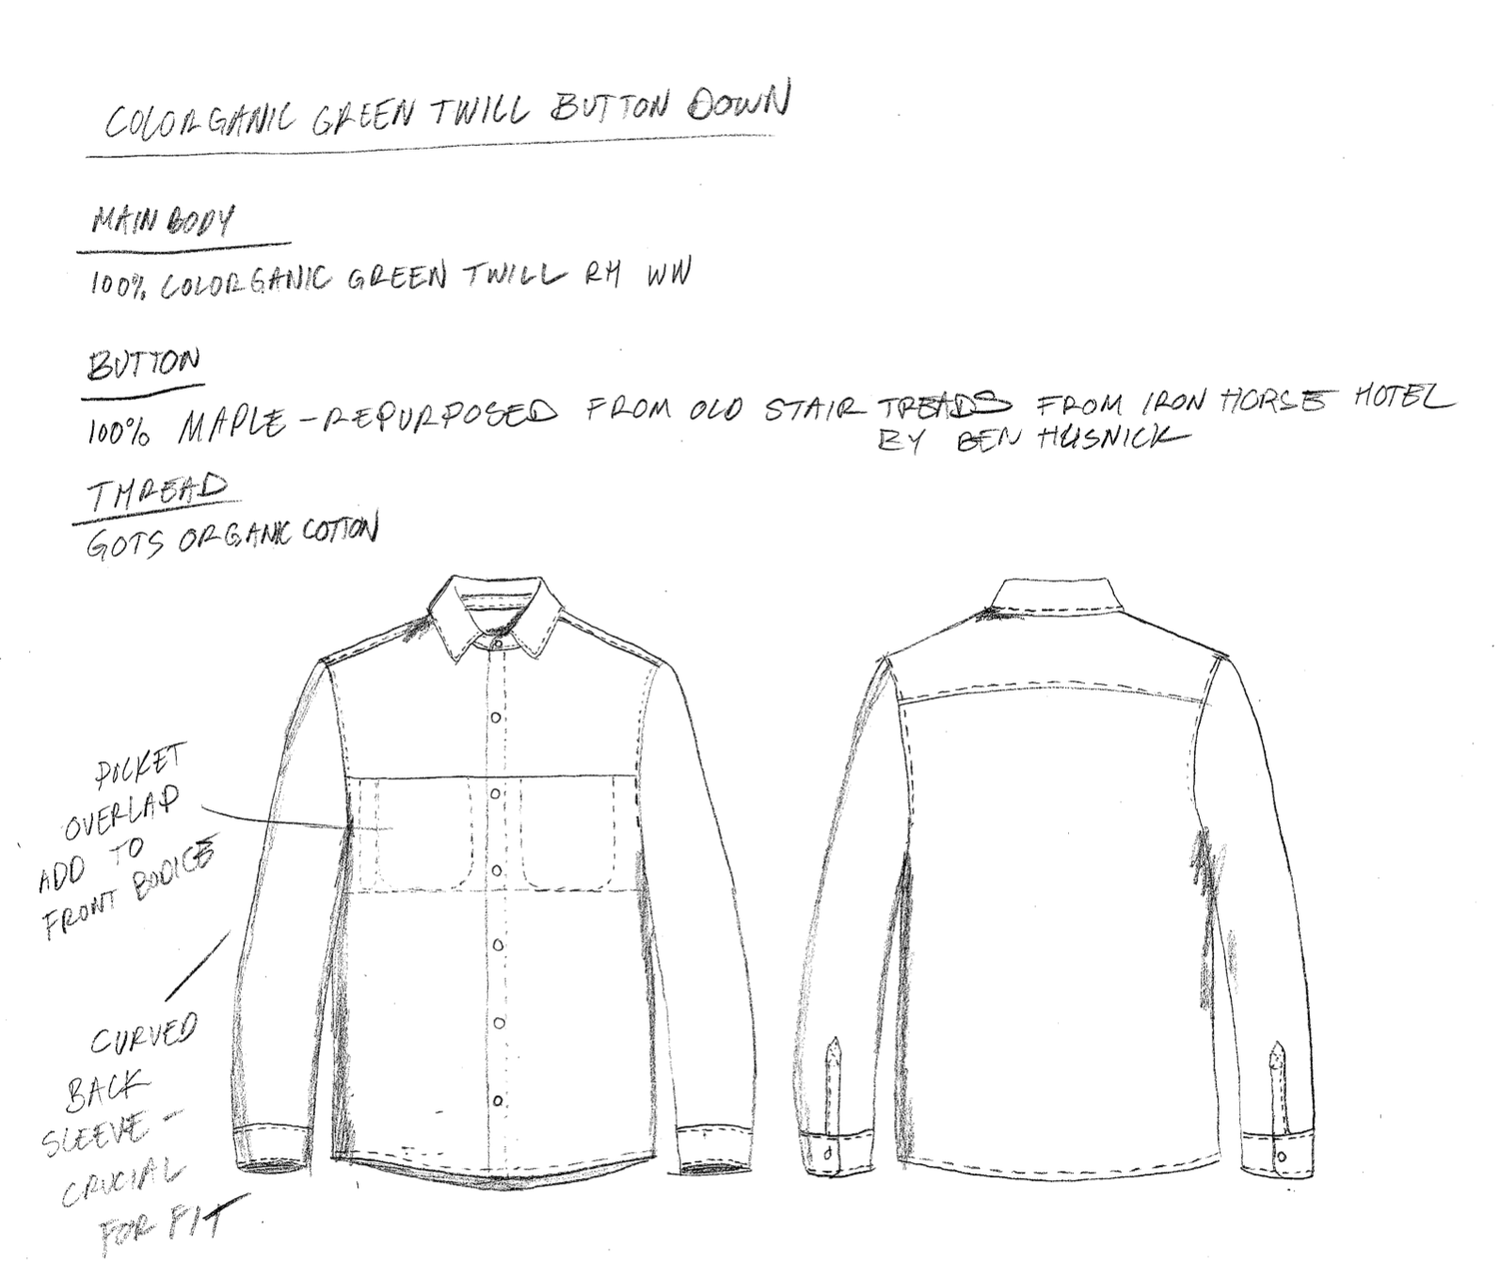 COLORGANIC GREEN TWILL BUTTON DOWN
MAIN BODY
100% COLORGANIC GREEN TWILL RH WW
BUTTON
100% MAPLE - REPURPOSED FROM OLD STAIR TREADS FROM IRON HORSE HOTEL
BY BEN HUSNICK
THREAD
GOTS ORGANIC COTTON
POCKET
OVERLAP
ADD TO
FRONT BODICE
CURVED
BACK
SLEEVE -
CRUCIAL
FOR FIT